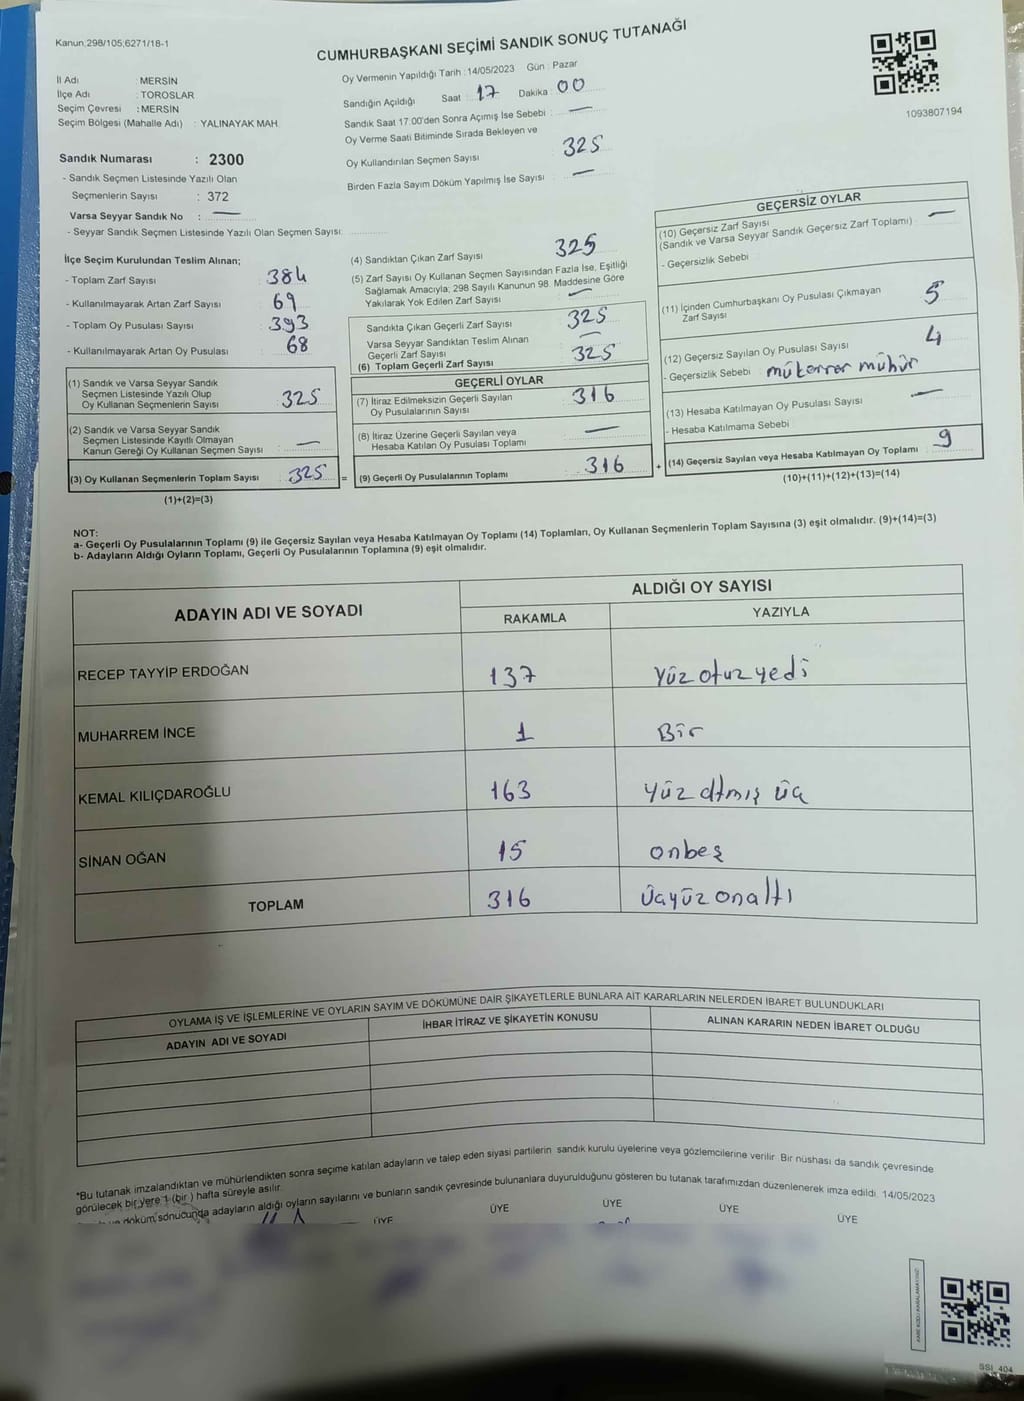 Kanun;298/105;6271/18-1
CUMHURBAŞKANI SEÇİMİ SANDIK SONUÇ TUTANAĞI
İl Adı : MERSİN
İlçe Adı : TOROSLAR
Seçim Çevresi : MERSİN
Seçim Bölgesi (Mahalle Adı) : YALINAYAK MAH.
Oy Vermenin Yapıldığı Tarih : 14/05/2023 Gün : Pazar
Sandığın Açıldığı Saat : 17 Dakika : 00
Sandık Saat 17:00'den Sonra Açımış İse Sebebi : —
Oy Verme Saati Bitiminde Sırada Bekleyen ve
Oy Kullandırılan Seçmen Sayısı : 325
Birden Fazla Sayım Döküm Yapılmış İse Sayısı : —
1093807194
Sandık Numarası : 2300
- Sandık Seçmen Listesinde Yazılı Olan
Seçmenlerin Sayısı : 372
Varsa Seyyar Sandık No : —
- Seyyar Sandık Seçmen Listesinde Yazılı Olan Seçmen Sayısı:
İlçe Seçim Kurulundan Teslim Alınan;
- Toplam Zarf Sayısı : 384
- Kullanılmayarak Artan Zarf Sayısı : 69
- Toplam Oy Pusulası Sayısı : 393
- Kullanılmayarak Artan Oy Pusulası : 68
(1) Sandık ve Varsa Seyyar Sandık
Seçmen Listesinde Yazılı Olup
Oy Kullanan Seçmenlerin Sayısı : 325
(2) Sandık ve Varsa Seyyar Sandık
Seçmen Listesinde Kayıtlı Olmayan
Kanun Gereği Oy Kullanan Seçmen Sayısı : —
(3) Oy Kullanan Seçmenlerin Toplam Sayısı : 325
(1)+(2)=(3)
(4) Sandıktan Çıkan Zarf Sayısı 325
(5) Zarf Sayısı Oy Kullanan Seçmen Sayısından Fazla İse, Eşitliği
Sağlamak Amacıyla; 298 Sayılı Kanunun 98. Maddesine Göre
Yakılarak Yok Edilen Zarf Sayısı —
Sandıkta Çıkan Geçerli Zarf Sayısı : 325
Varsa Seyyar Sandıktan Teslim Alınan
Geçerli Zarf Sayısı : —
(6) Toplam Geçerli Zarf Sayısı : 325
GEÇERLİ OYLAR
(7) İtiraz Edilmeksizin Geçerli Sayılan
Oy Pusulalarının Sayısı : 316
(8) İtiraz Üzerine Geçerli Sayılan veya
Hesaba Katılan Oy Pusulası Toplamı : —
= (9) Geçerli Oy Pusulalarının Toplamı : 316
GEÇERSİZ OYLAR
(10) Geçersiz Zarf Sayısı : —
(Sandık ve Varsa Seyyar Sandık Geçersiz Zarf Toplamı)
- Geçersizlik Sebebi
(11) İçinden Cumhurbaşkanı Oy Pusulası Çıkmayan
Zarf Sayısı : 5
(12) Geçersiz Sayılan Oy Pusulası Sayısı : 4
- Geçersizlik Sebebi mükerrer mühür
(13) Hesaba Katılmayan Oy Pusulası Sayısı : —
- Hesaba Katılmama Sebebi
+ (14) Geçersiz Sayılan veya Hesaba Katılmayan Oy Toplamı : 9
(10)+(11)+(12)+(13)=(14)
NOT:
a- Geçerli Oy Pusulalarının Toplamı (9) ile Geçersiz Sayılan veya Hesaba Katılmayan Oy Toplamı (14) Toplamları, Oy Kullanan Seçmenlerin Toplam Sayısına (3) eşit olmalıdır. (9)+(14)=(3)
b- Adayların Aldığı Oyların Toplamı, Geçerli Oy Pusulalarının Toplamına (9) eşit olmalıdır.
ADAYIN ADI VE SOYADI ALDIĞI OY SAYISI
RAKAMLA YAZIYLA
RECEP TAYYİP ERDOĞAN 137 Yüz otuz yedi
MUHARREM İNCE 1 Bir
KEMAL KILIÇDAROĞLU 163 yüz altmış üç
SİNAN OĞAN 15 onbeş
TOPLAM 316 Üçyüz onaltı
OYLAMA İŞ VE İŞLEMLERİNE VE OYLARIN SAYIM VE DÖKÜMÜNE DAİR ŞİKAYETLERLE BUNLARA AİT KARARLARIN NELERDEN İBARET BULUNDUKLARI
ADAYIN ADI VE SOYADI İHBAR İTİRAZ VE ŞİKAYETİN KONUSU ALINAN KARARIN NEDEN İBARET OLDUĞU
*Bu tutanak imzalandıktan ve mühürlendikten sonra seçime katılan adayların ve talep eden siyasi partilerin sandık kurulu üyelerine veya gözlemcilerine verilir. Bir nüshası da sandık çevresinde
görülecek bir yere 1 (bir ) hafta süreyle asılır.
ve döküm sonucunda adayların aldığı oyların sayılarını ve bunların sandık çevresinde bulunanlara duyurulduğunu gösteren bu tutanak tarafımızdan düzenlenerek imza edildi. 14/05/2023
ÜYE ÜYE ÜYE ÜYE ÜYE
KARE KODU KARALAMAYINIZ!
SSI_404